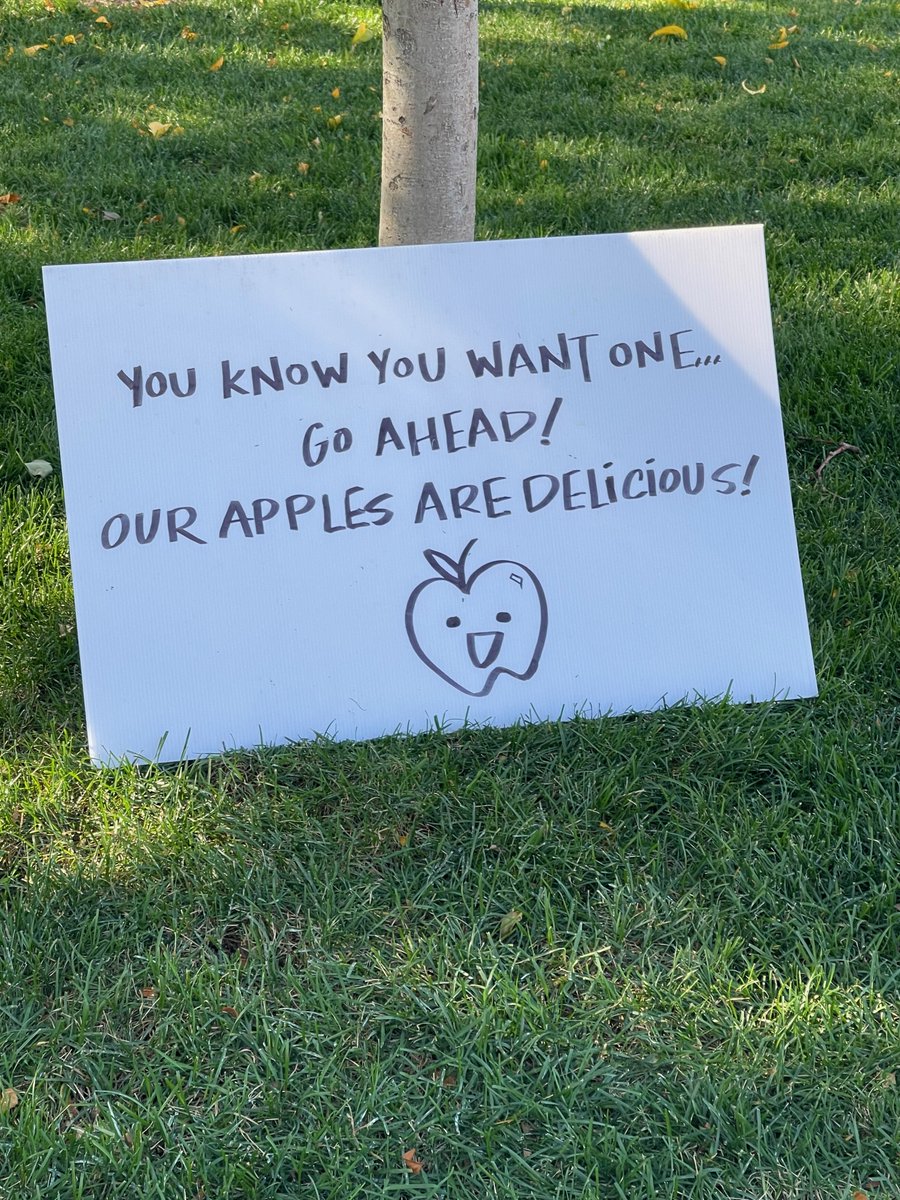 YOU KNOW YOU WANT ONE...
GO AHEAD!
OUR APPLES ARE DELiCiOUS!